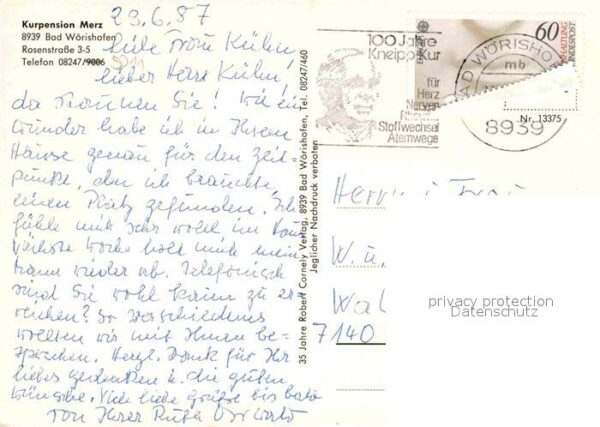 Kurpension Merz
8939 Bad Wörishofen
Rosenstraße 3-5
Telefon 08247/9006
23.6.87
Liebe Frau Kühn,
lieber Herr Kühn,
da staunen Sie! Wie ein
Wunder habe ich in Ihrem
Hause genau für den Zeit-
punkt, den ich brauchte,
einen Platz gefunden. Ich
fühle mich sehr wohl im Haus
Nächste Woche holt mich mein
Mann wieder ab. Telefonisch
sind Sie wohl kaum zu er-
reichen? So verschiedenes
wollten wir mit Ihnen be-
sprechen. Herzl. Dank für Ihr
liebes Gedenken u. die guten
Wünsche. Viele liebe Grüße bis bald
von Ihrer
35 Jahre Robert Cornely Verlag, 8939 Bad Wörishofen, Tel. 08247/460
Jeglicher Nachdruck verboten
100 Jahre
Kneipp-Kur
für
Herz
Nerven
Stoffwechsel
Atemwege
60
DEUTSCHE BUNDESPOST
BAD WÖRISHOFEN
mb
8939
Nr. 13375
Herrn u. Frau
W. u.
7140
privacy protection
Datenschutz